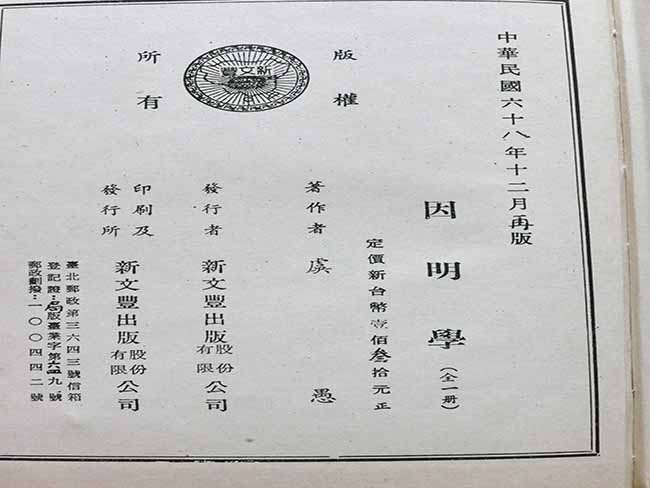 中華民國六十八年十二月再版
因明學(全一册)
定價新台幣壹佰叁拾元正
版權所有
新文豐
著作者 虞愚
發行者 新文豐出版股份有限公司
印刷及發行所 新文豐出版股份有限公司
臺北郵政第三六四三號信箱
登記證:局版臺業字第六四九號
郵政劃撥:一〇〇四四二號